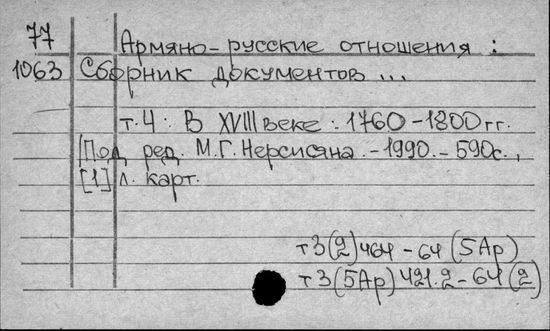 77 Армяно-русские отношения :
1063 Сборник документов ...
т.4: В XVIII веке : 1760-1800 гг.
[Под ред. М.Г. Нерсисяна. - 1990. - 590с.,
[1] л. карт.
т3(2)464 - 64 (5Ар)
т3(5Ар)421.2 - 64 (2)